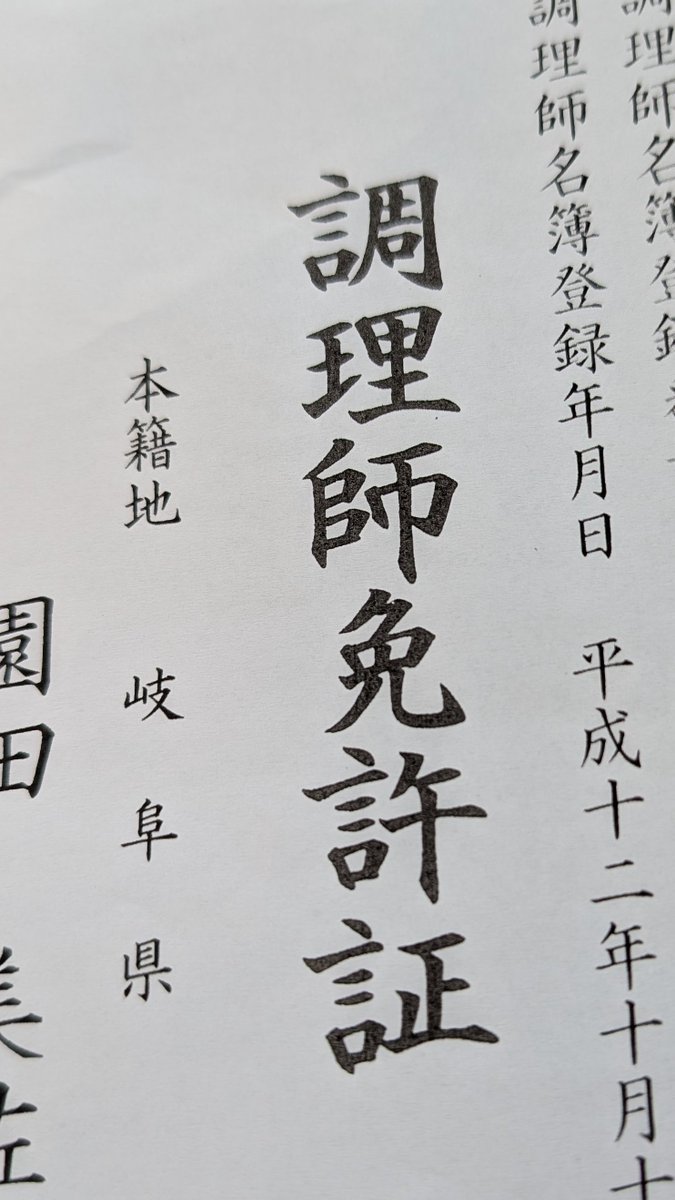 調理師名簿登録
調理師名簿登録年月日 平成十二年十月十
調理師免許証
本籍地 岐阜県
園田 美